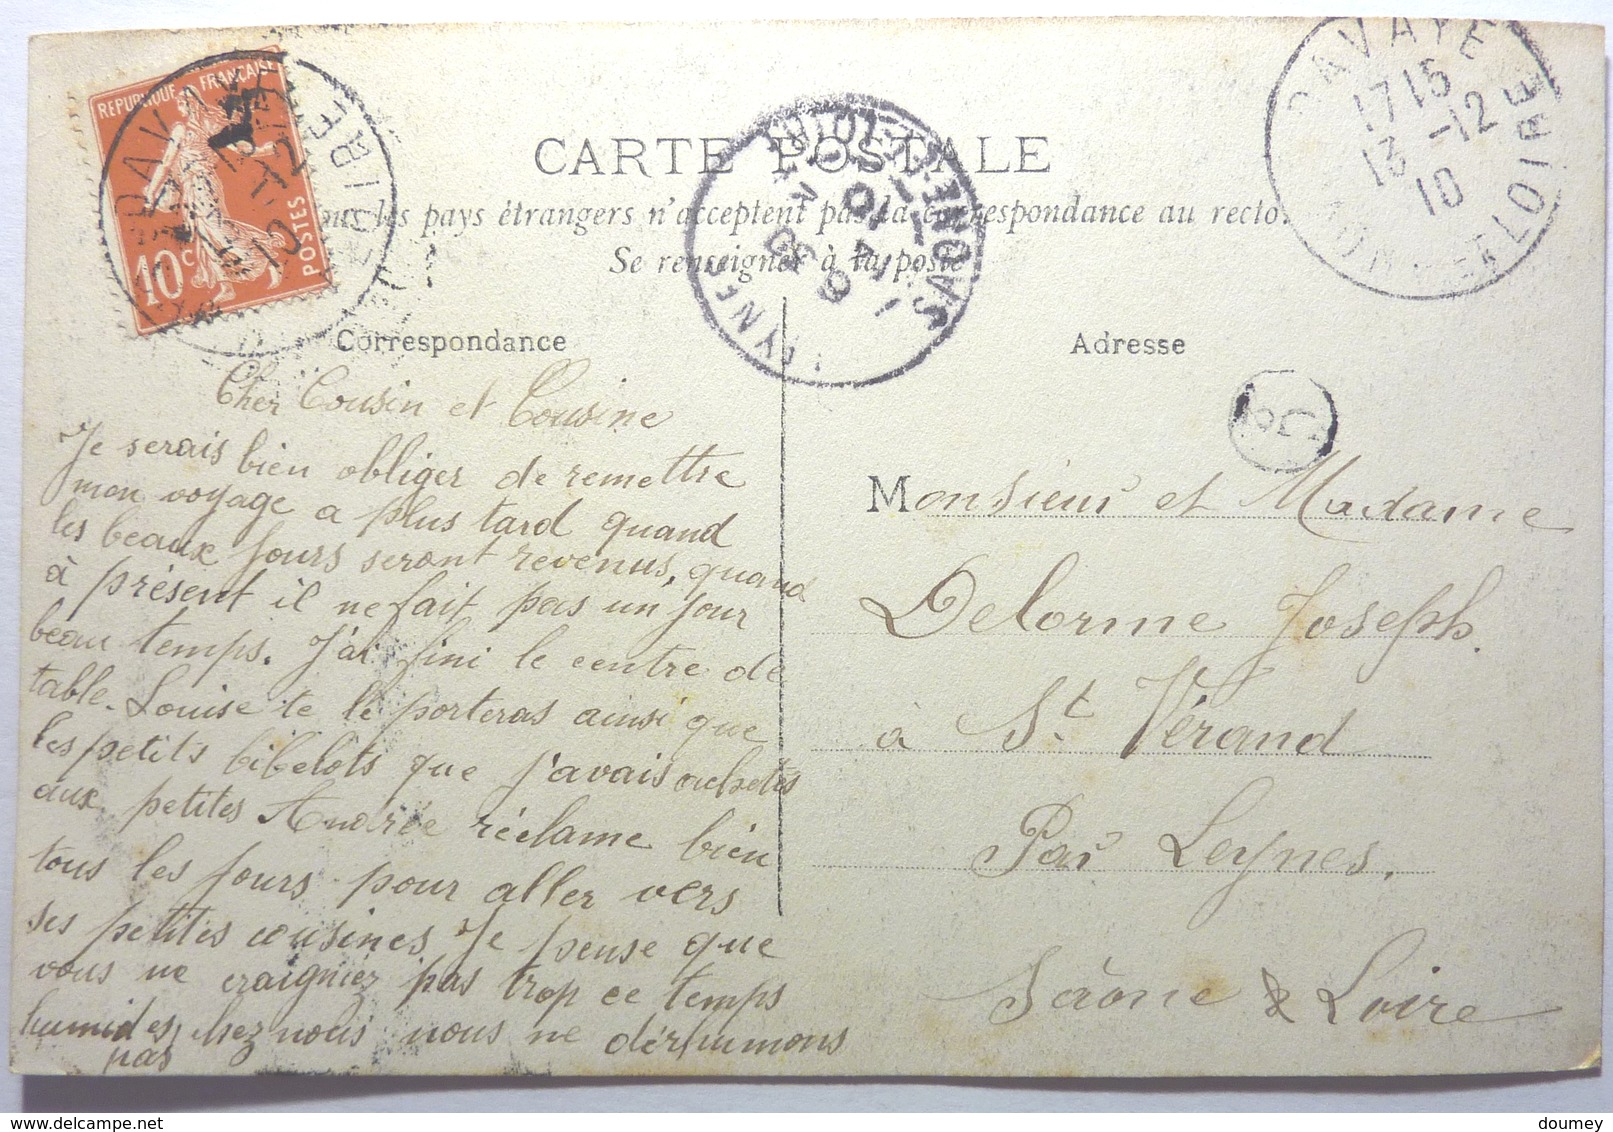 REPUBLIQUE FRANÇAISE
10c
POSTES
DAVAYE
17 15
13 -12
10
SAONE-ET-LOIRE
CARTE POSTALE
Tous les pays étrangers n'acceptent pas la correspondance au recto.
Se renseigner à la poste
Correspondance
Cher Cousin et Cousine
Je serais bien obliger de remettre
mon voyage a plus tard quand
les beaux jours seront revenus, quand
à présent il ne fait pas un jour
beau temps. J'ai fini le centre de
table. Louise te le porteras ainsi que
les petits bibelots que j'avais achetés
aux petites Andrée réclame bien
tous les jours pour aller vers
ses petites cousines, Je pense que
vous ne craigniez pas trop ce temps
humides, chez nous nous ne dérhumons
pas
Adresse
Monsieur et Madame
Delorme Joseph.
à St. Vérand
Par Leynes.
Saône & Loire
doumey